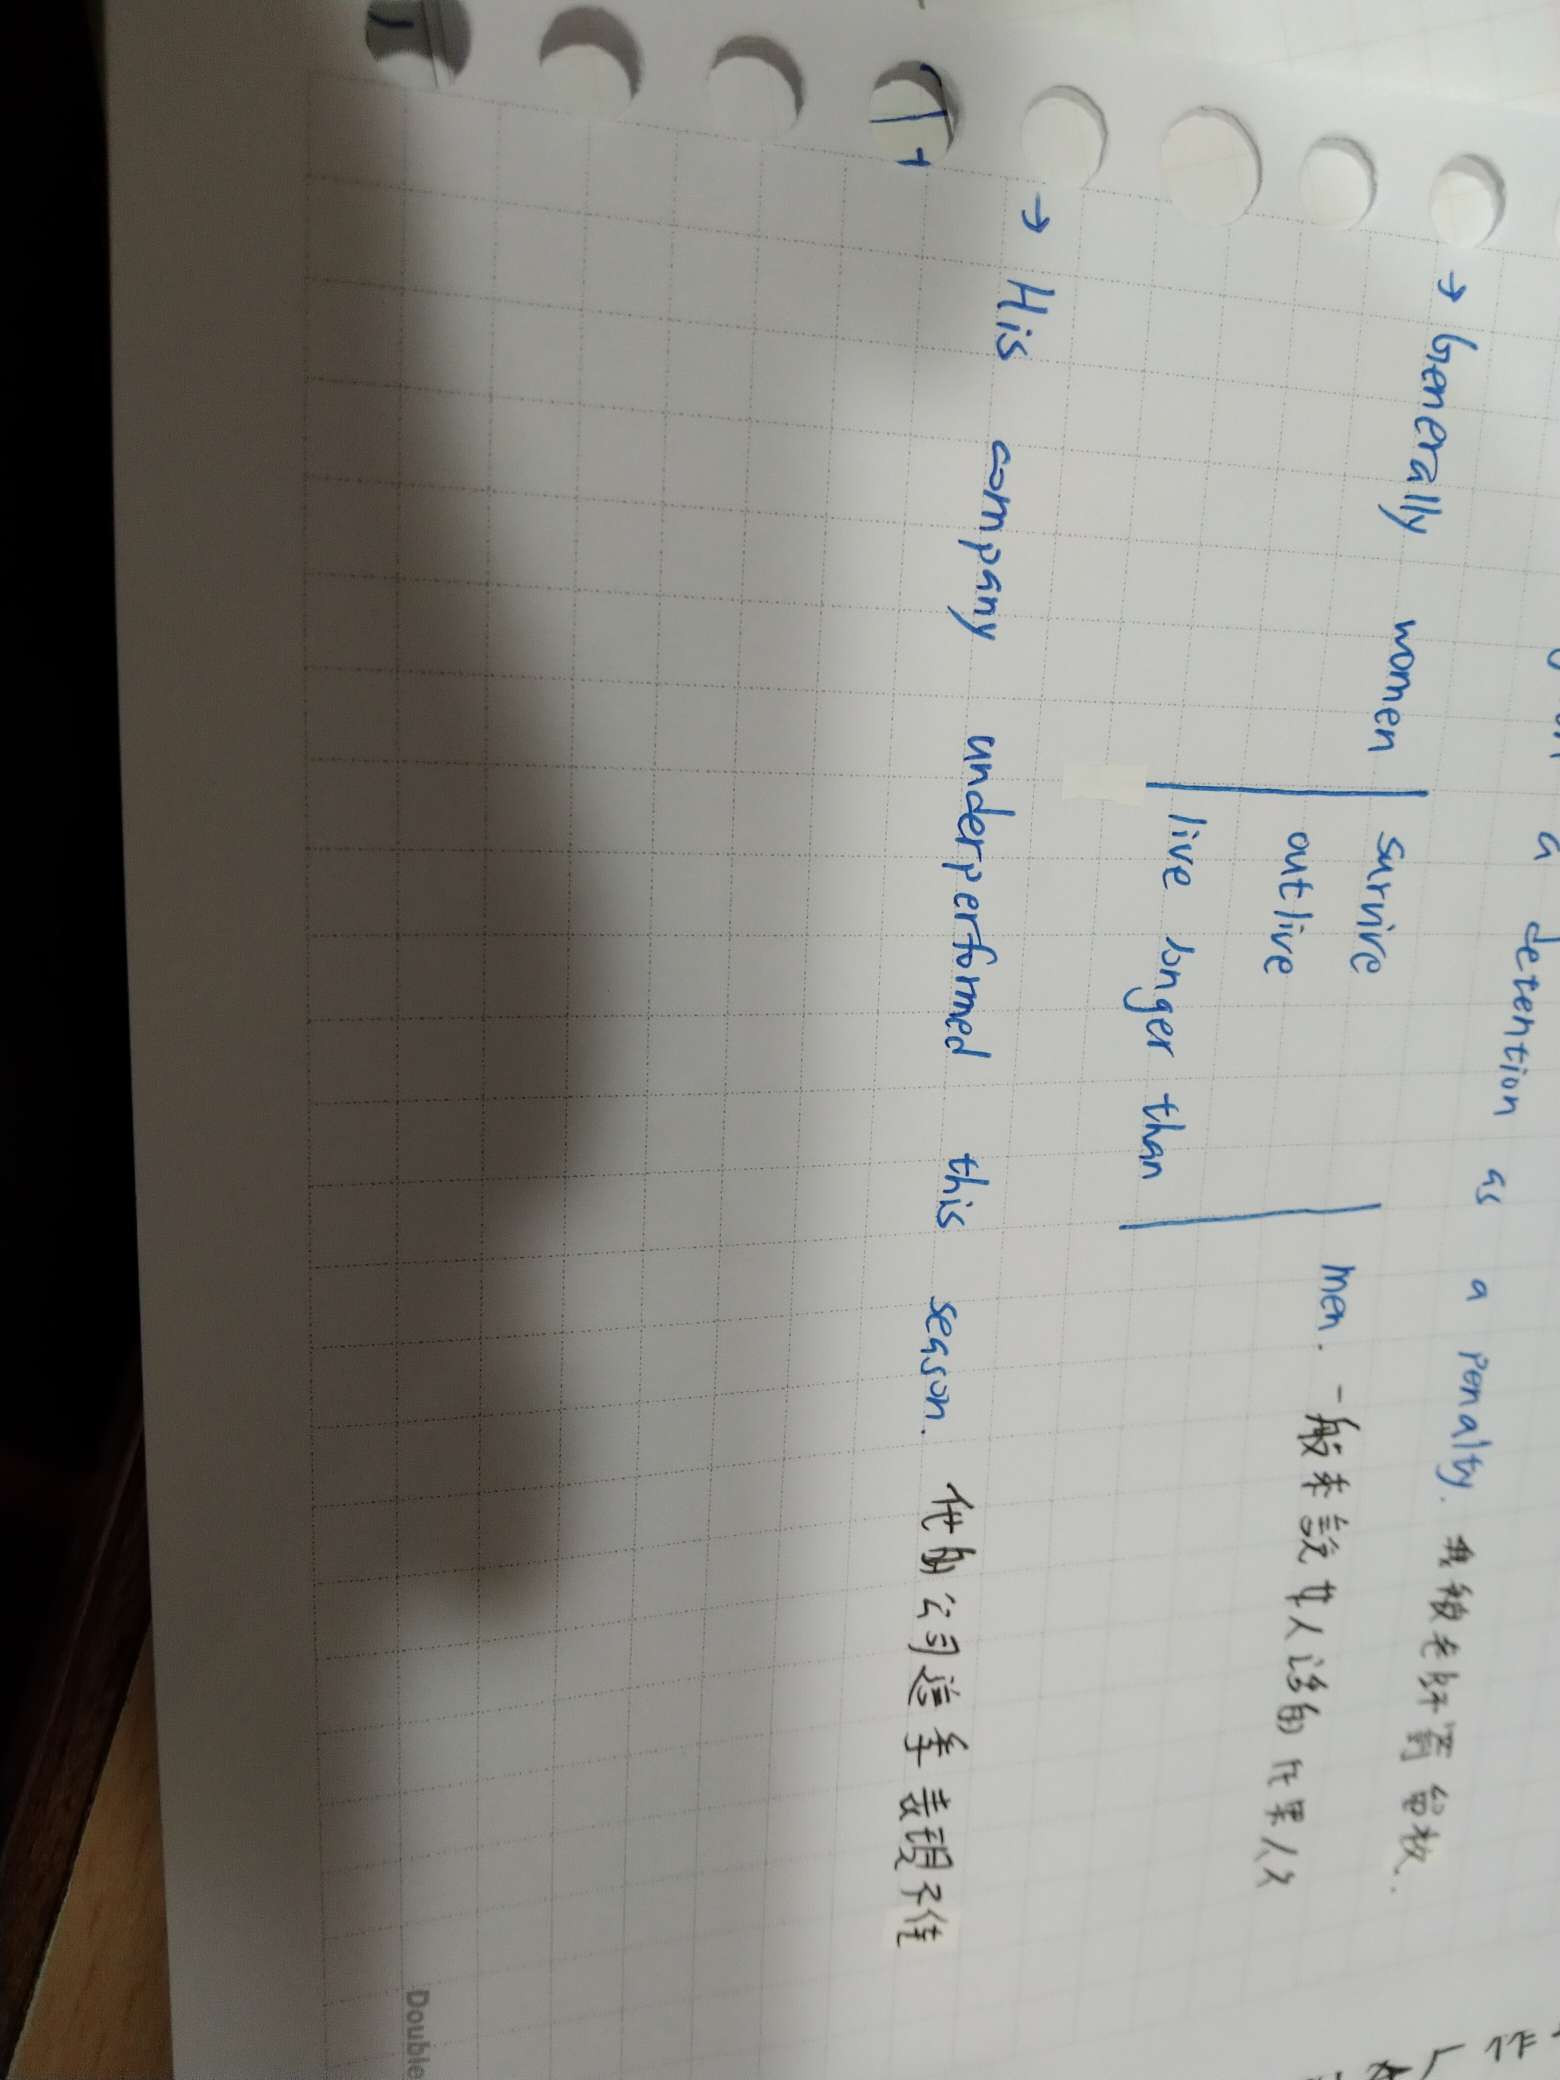 a detention as a penalty. 我被老師罰留校.
→ Generally women | survive
outlive
live longer than | men. 一般來說女人活的比男人久
→ His company underperformed this season. 他的公司這季表現不佳
Double